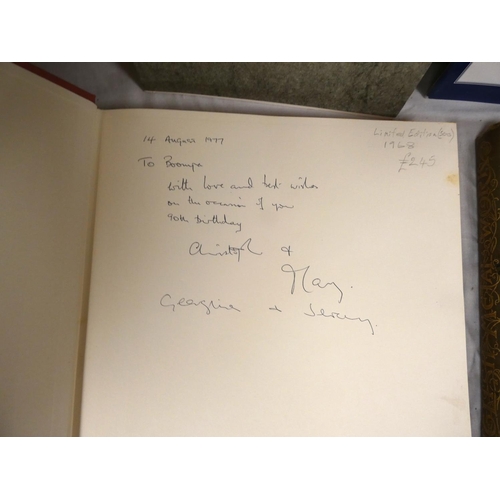 14 August 1977
To Boompa
with love and best wishes
on the occasion of you
90th Birthday
Christoph &
Mary.
Georgina + Jeremy.
Limited Edition (500)
1968
£245